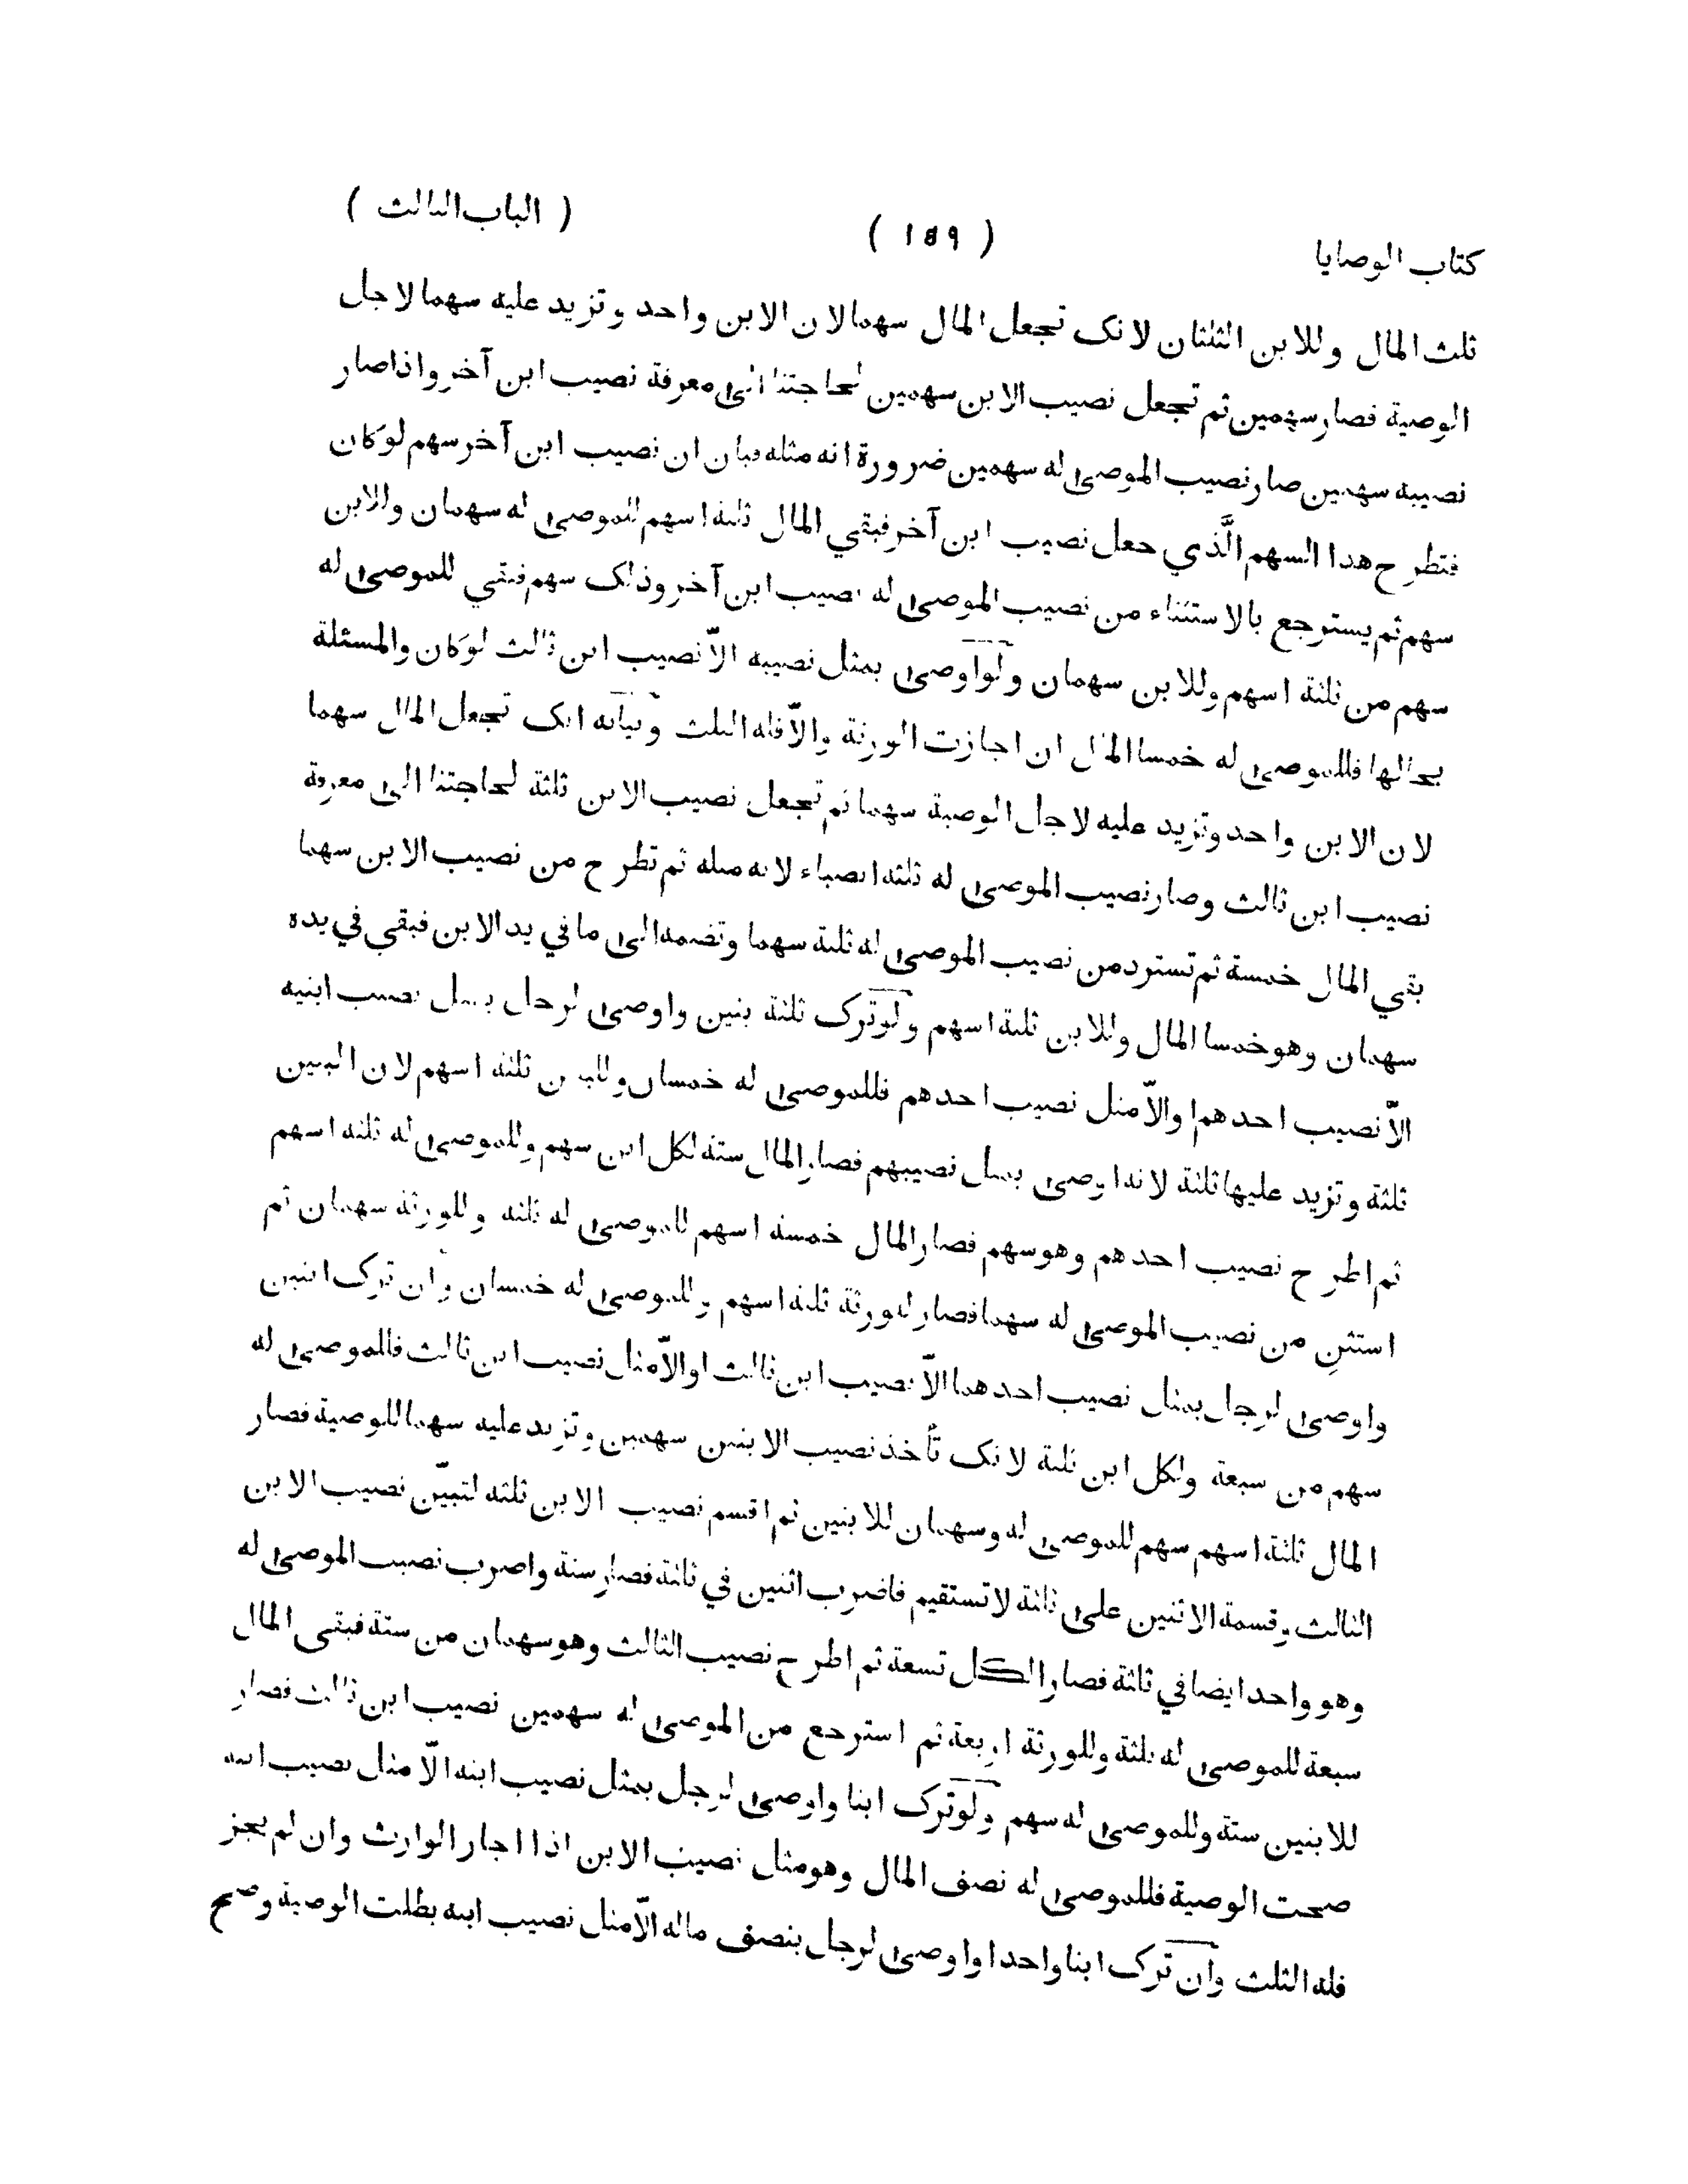 كتاب الوصايا ( ١٥٩ ) ( الباب الثالث )
ثلث المال وللابن الثلثان لانك تجعل المال سهما لان الابن واحد وتزيد عليه سهما لاجل
الوصية فصار سهمين ثم تجعل نصيب الابن سهمين لحاجتنا الى معرفة نصيب ابن آخر واذا صار
نصيبه سهمين صار نصيب الموصى له سهمين ضرورة انه مثله فبان ان نصيب ابن آخر سهم لوكان
فتطرح هذا السهم الَّذي جعل نصيب ابن آخر فبقي المال ثلثة اسهم للموصى له سهمان وللابن
سهم ثم يسترجع بالاستثناء من نصيب الموصى له نصيب ابن آخر وذلك سهم فبقي للموصى له
سهم من ثلثة اسهم وللابن سهمان ولو اوصى بمثل نصيبه الاّ نصيب ابن ثالث لوكان والمسئلة
بحالها فللموصى له خمسا المال ان اجازت الورثة والاّ فله الثلث وبيانه انك تجعل المال سهما
لان الابن واحد وتزيد عليه لاجل الوصية سهما ثم تجعل نصيب الابن ثلثة لحاجتنا الى معرفة
نصيب ابن ثالث وصار نصيب الموصى له ثلثة انصباء لانه مثله ثم تطرح من نصيب الابن سهما
بقي المال خمسة ثم تسترد من نصيب الموصى له ثلثة سهما وتضمه الى ما في يد الابن فبقى في يده
سهمان وهو خمسا المال وللابن ثلثة اسهم ولو ترك ثلثة بنين واوصى لرجل بمثل نصيب ابنيه
الاّ نصيب احدهم او الاّ مثل نصيب احدهم فللموصى له خمسان وللبنين ثلثة اسهم لان البنين
ثلثة وتزيد عليها ثلثة لانه اوصى بمثل نصيبهم فصار المال ستة لكل ابن سهم وللموصى له ثلثة اسهم
ثم اطرح نصيب احدهم وهو سهم فصار المال خمسة اسهم للموصى له ثلثة وللورثة سهمان ثم
استثنِ من نصيب الموصى له سهما فصار للورثة ثلثة اسهم وللموصى له خمسان وان ترك ابنين
واوصى لرجل بمثل نصيب احدهما الاّ نصيب ابن ثالث او الاّ مثل نصيب ابن ثالث فللموصى له
سهم من سبعة ولكل ابن ثلثة لانك تأخذ نصيب الابنين سهمين وتزيد عليه سهما للوصية فصار
المال ثلثة اسهم سهم للموصى له وسهمان للابنين ثم اقسم نصيب الابن ثلثه لتبيّن نصيب الابن
الثالث وقسمة الاثنين على ثلثة لا تستقيم فاضرب اثنين في ثلثة فصار ستة واضرب نصيب الموصى له
وهو واحد ايضا في ثلثة فصار الكل تسعة ثم اطرح نصيب الثالث وهو سهمان من ستة فبقى المال
سبعة للموصى له ثلثة وللورثة اربعة ثم استرجع من الموصى له سهمين نصيب ابن ثالث فصار
للابنين ستة وللموصى له سهم ولو ترك ابنا واوصى لرجل بمثل نصيب ابنه الاّ مثل نصيب ابنه
صحت الوصية فللموصى له نصف المال وهو مثل نصيب الابن اذا اجاز الوارث وان لم يجز
فله الثلث وان ترك ابنا واحدا واوصى لرجل بنصف ماله الاّ مثل نصيب ابنه بطلت الوصية وصح